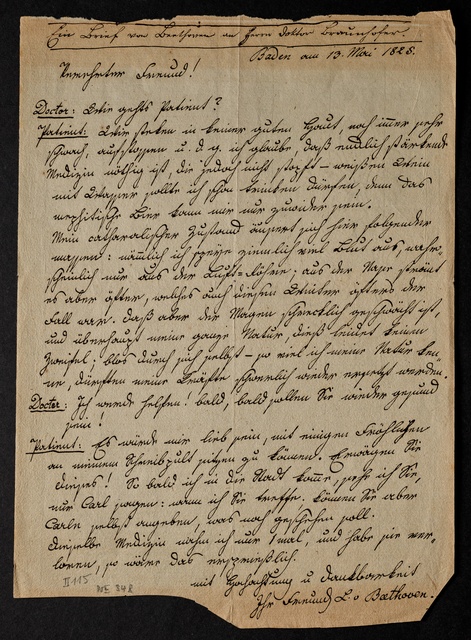 Ein Brief von Beethoven an Herrn Doktor Braunhofer.
Baden am 13. Mai 1825.
Verehrter Freund!
Doctor: Wie gehts Patient?
Patient: Wir steken in keiner guten Haut, noch immer sehr
schwach, aufstoßen u. d. g. ich glaube, daß endlich stärkende
Medizin nöthig ist, die jedoch nicht stopft – weißen Wein
mit Wasser sollte ich schon trinken dürfen, denn das
mephitische Bier kann mir nur zuwider sein.
Mein catharalischer Zustand äußert sich hier folgender
massen: nämlich ich speye ziemlich viel Blut aus, wahr-
scheinlich nur aus der Luft-röhre; aus der Nase strömt
es aber öfter, welches auch diesen Winter öfters der
Fall war. daß aber der Magen schrecklich geschwächt ist,
und überhaupt meine ganze Natur, dieß leidet keinen
Zweifel. blos durch sich selbst – so viel ich meine Natur ken-
ne, dürften meine Kräfte schwerlich wieder ersetzt werden.
Doctor: Ich werde helfen! bald, bald sollen Sie wieder gesund
sein!
Patient: Es würde mir lieb sein, mit einigen Fröhlichen
an meinem Schreibpult sitzen zu können. Erwägen Sie
dieses! So bald ich in die Stadt komme, sehe ich Sie,
nur Carl sagen: wann ich Sie treffe. können Sie aber
Carln selbst angeben, was noch geschehen soll.
dieselbe Medizin nahm ich nur 1 mal, und habe sie ver-
loren, so wäre das ersprießlich.
mit Hochachtung u Dankbarkeit
Ihr Freund L. v Beethoven.
II 115